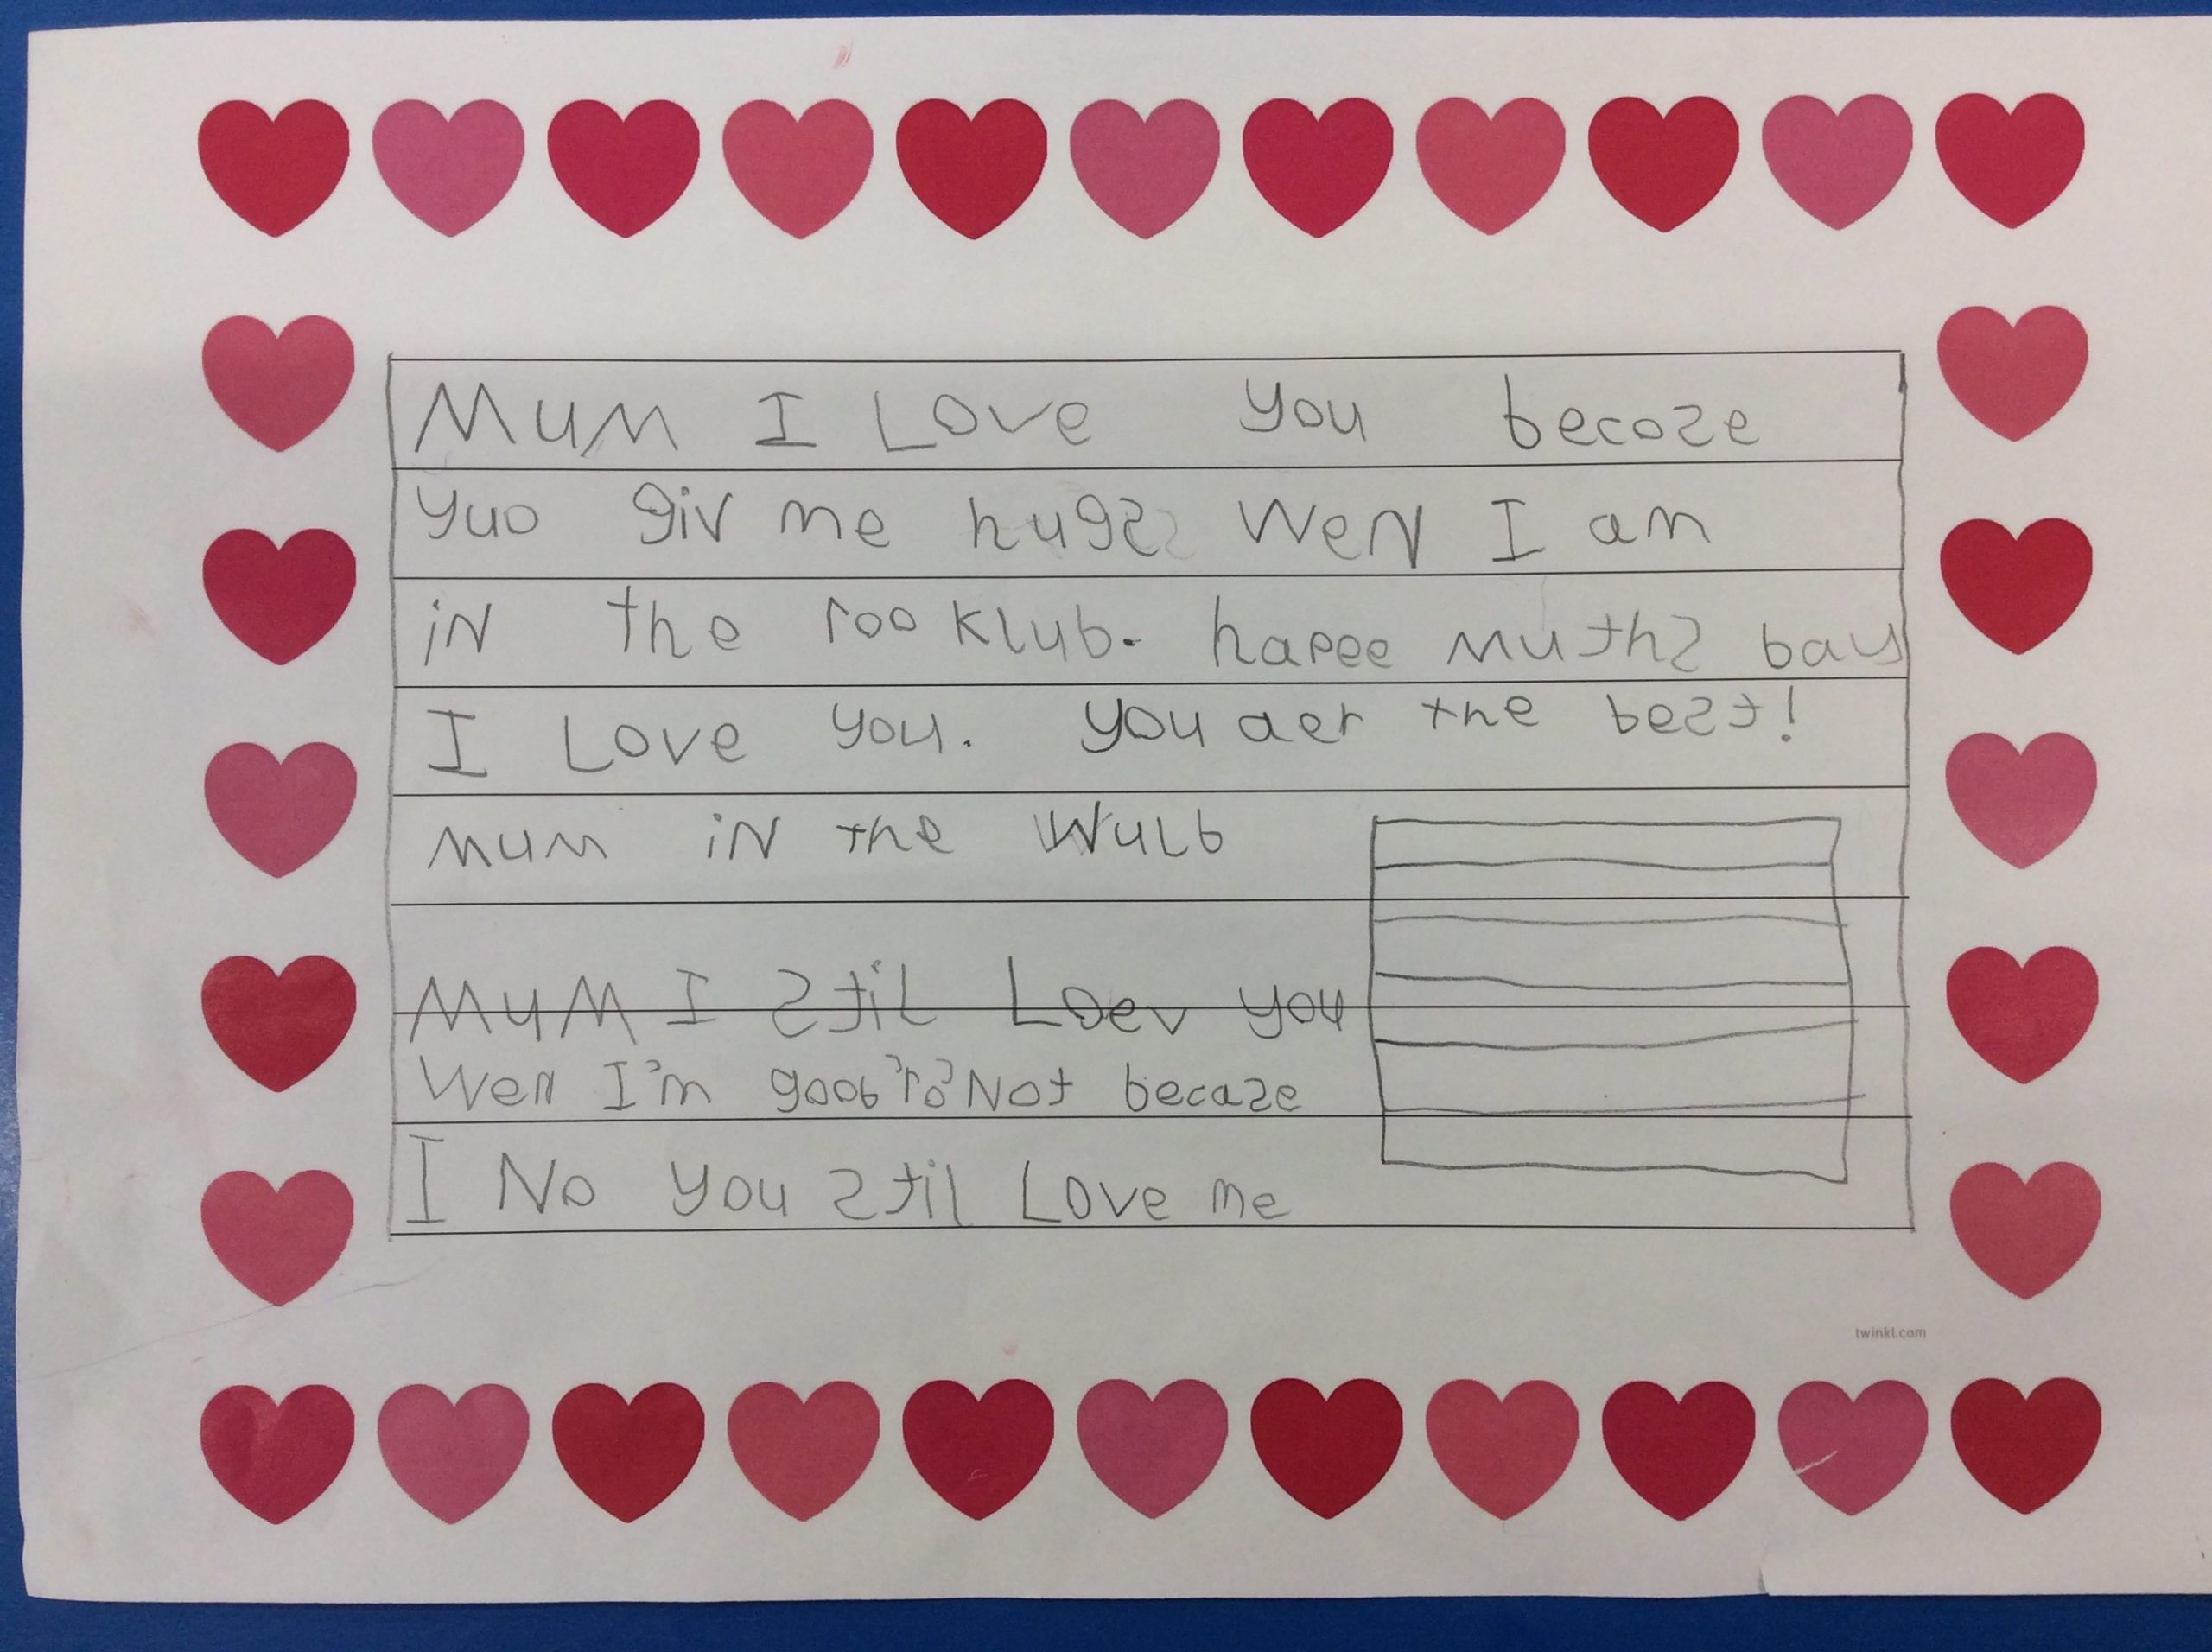 Mum I Love you becose
yuo giv me hugs weN I am
iN the roo klub. hapee muths bay
I Love you. you aer the best!
mum iN the wulb
Mum I stil Loev you
Wen I'm goob ro Not becase
I No you stil Love me
twinkl.com